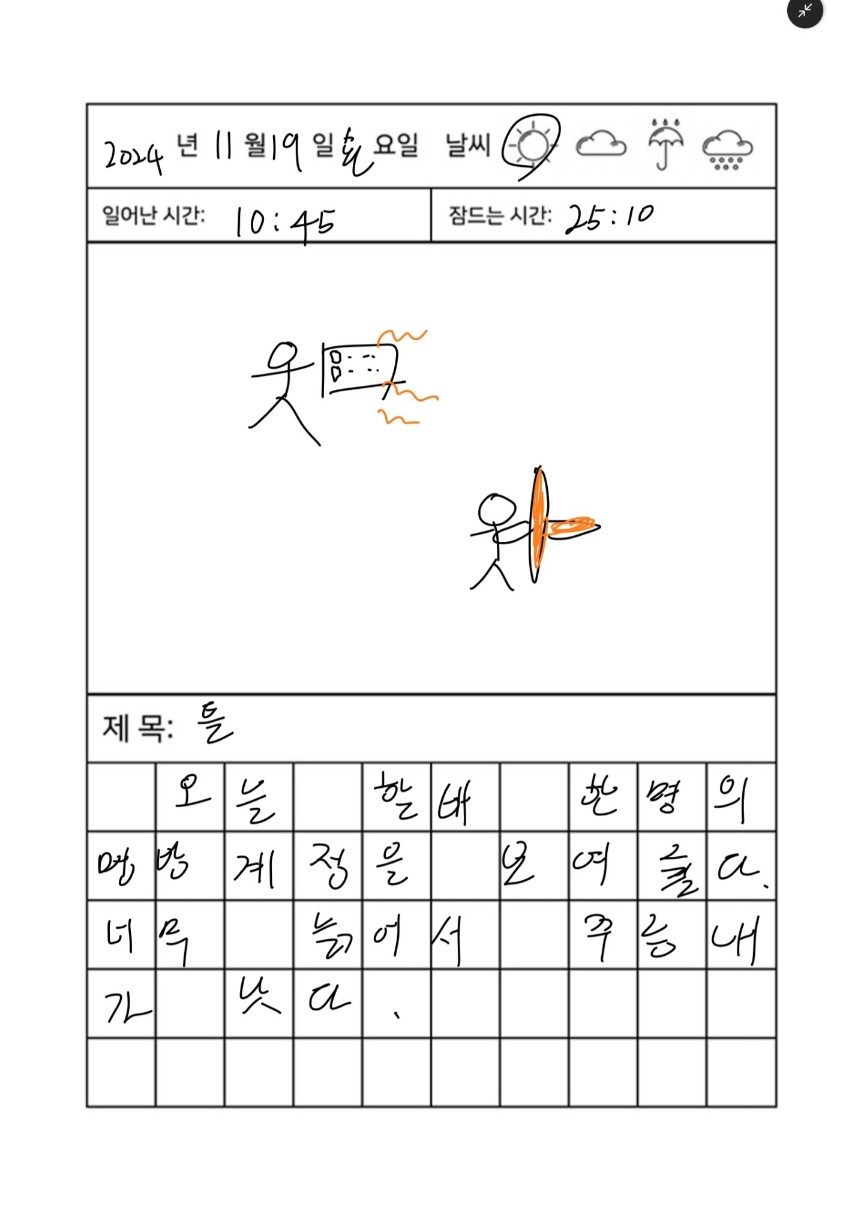 2024 년 11 월 19 일 요일 날씨
일어난 시간: 10:45 잠드는 시간: 25:10
제 목: 틀
오늘 할배 한명의
명방계정을 보여 다.
너무 늙어서 주름내
가 낫다.